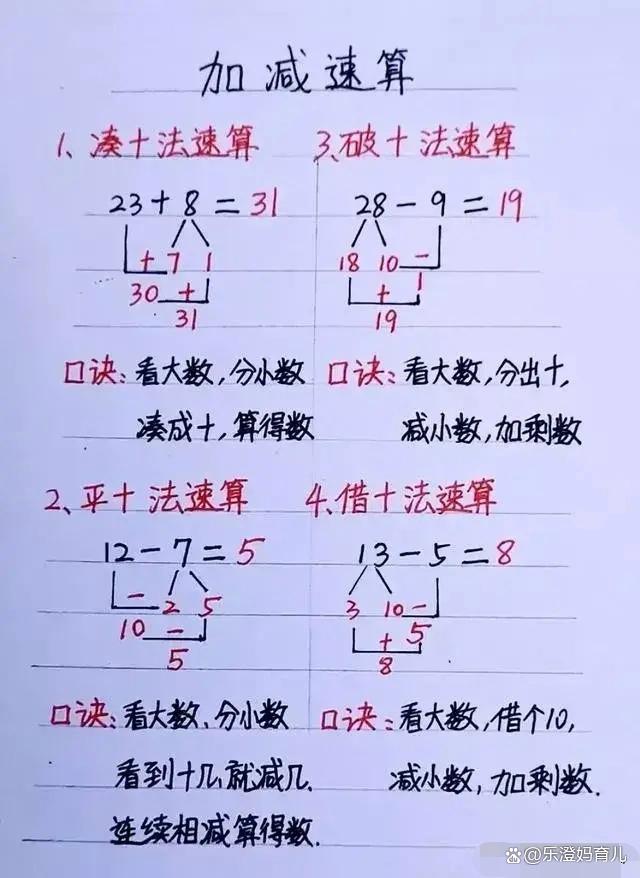 加减速算
1、凑十法速算
23+8=31
+ 7 1
30 +
31
口诀:看大数,分小数
凑成十,算得数
3、破十法速算
28-9=19
18 10 -
1
+
19
口诀:看大数,分出十,
减小数,加剩数
2、平十法速算
12-7=5
- 2 5
10 -
5
口诀:看大数、分小数
看到十几就减几.
连续相减算得数.
4、借十法速算
13-5=8
3 10 -
5
+
8
口诀:看大数,借个10,
减小数,加剩数.
@乐澄妈育儿